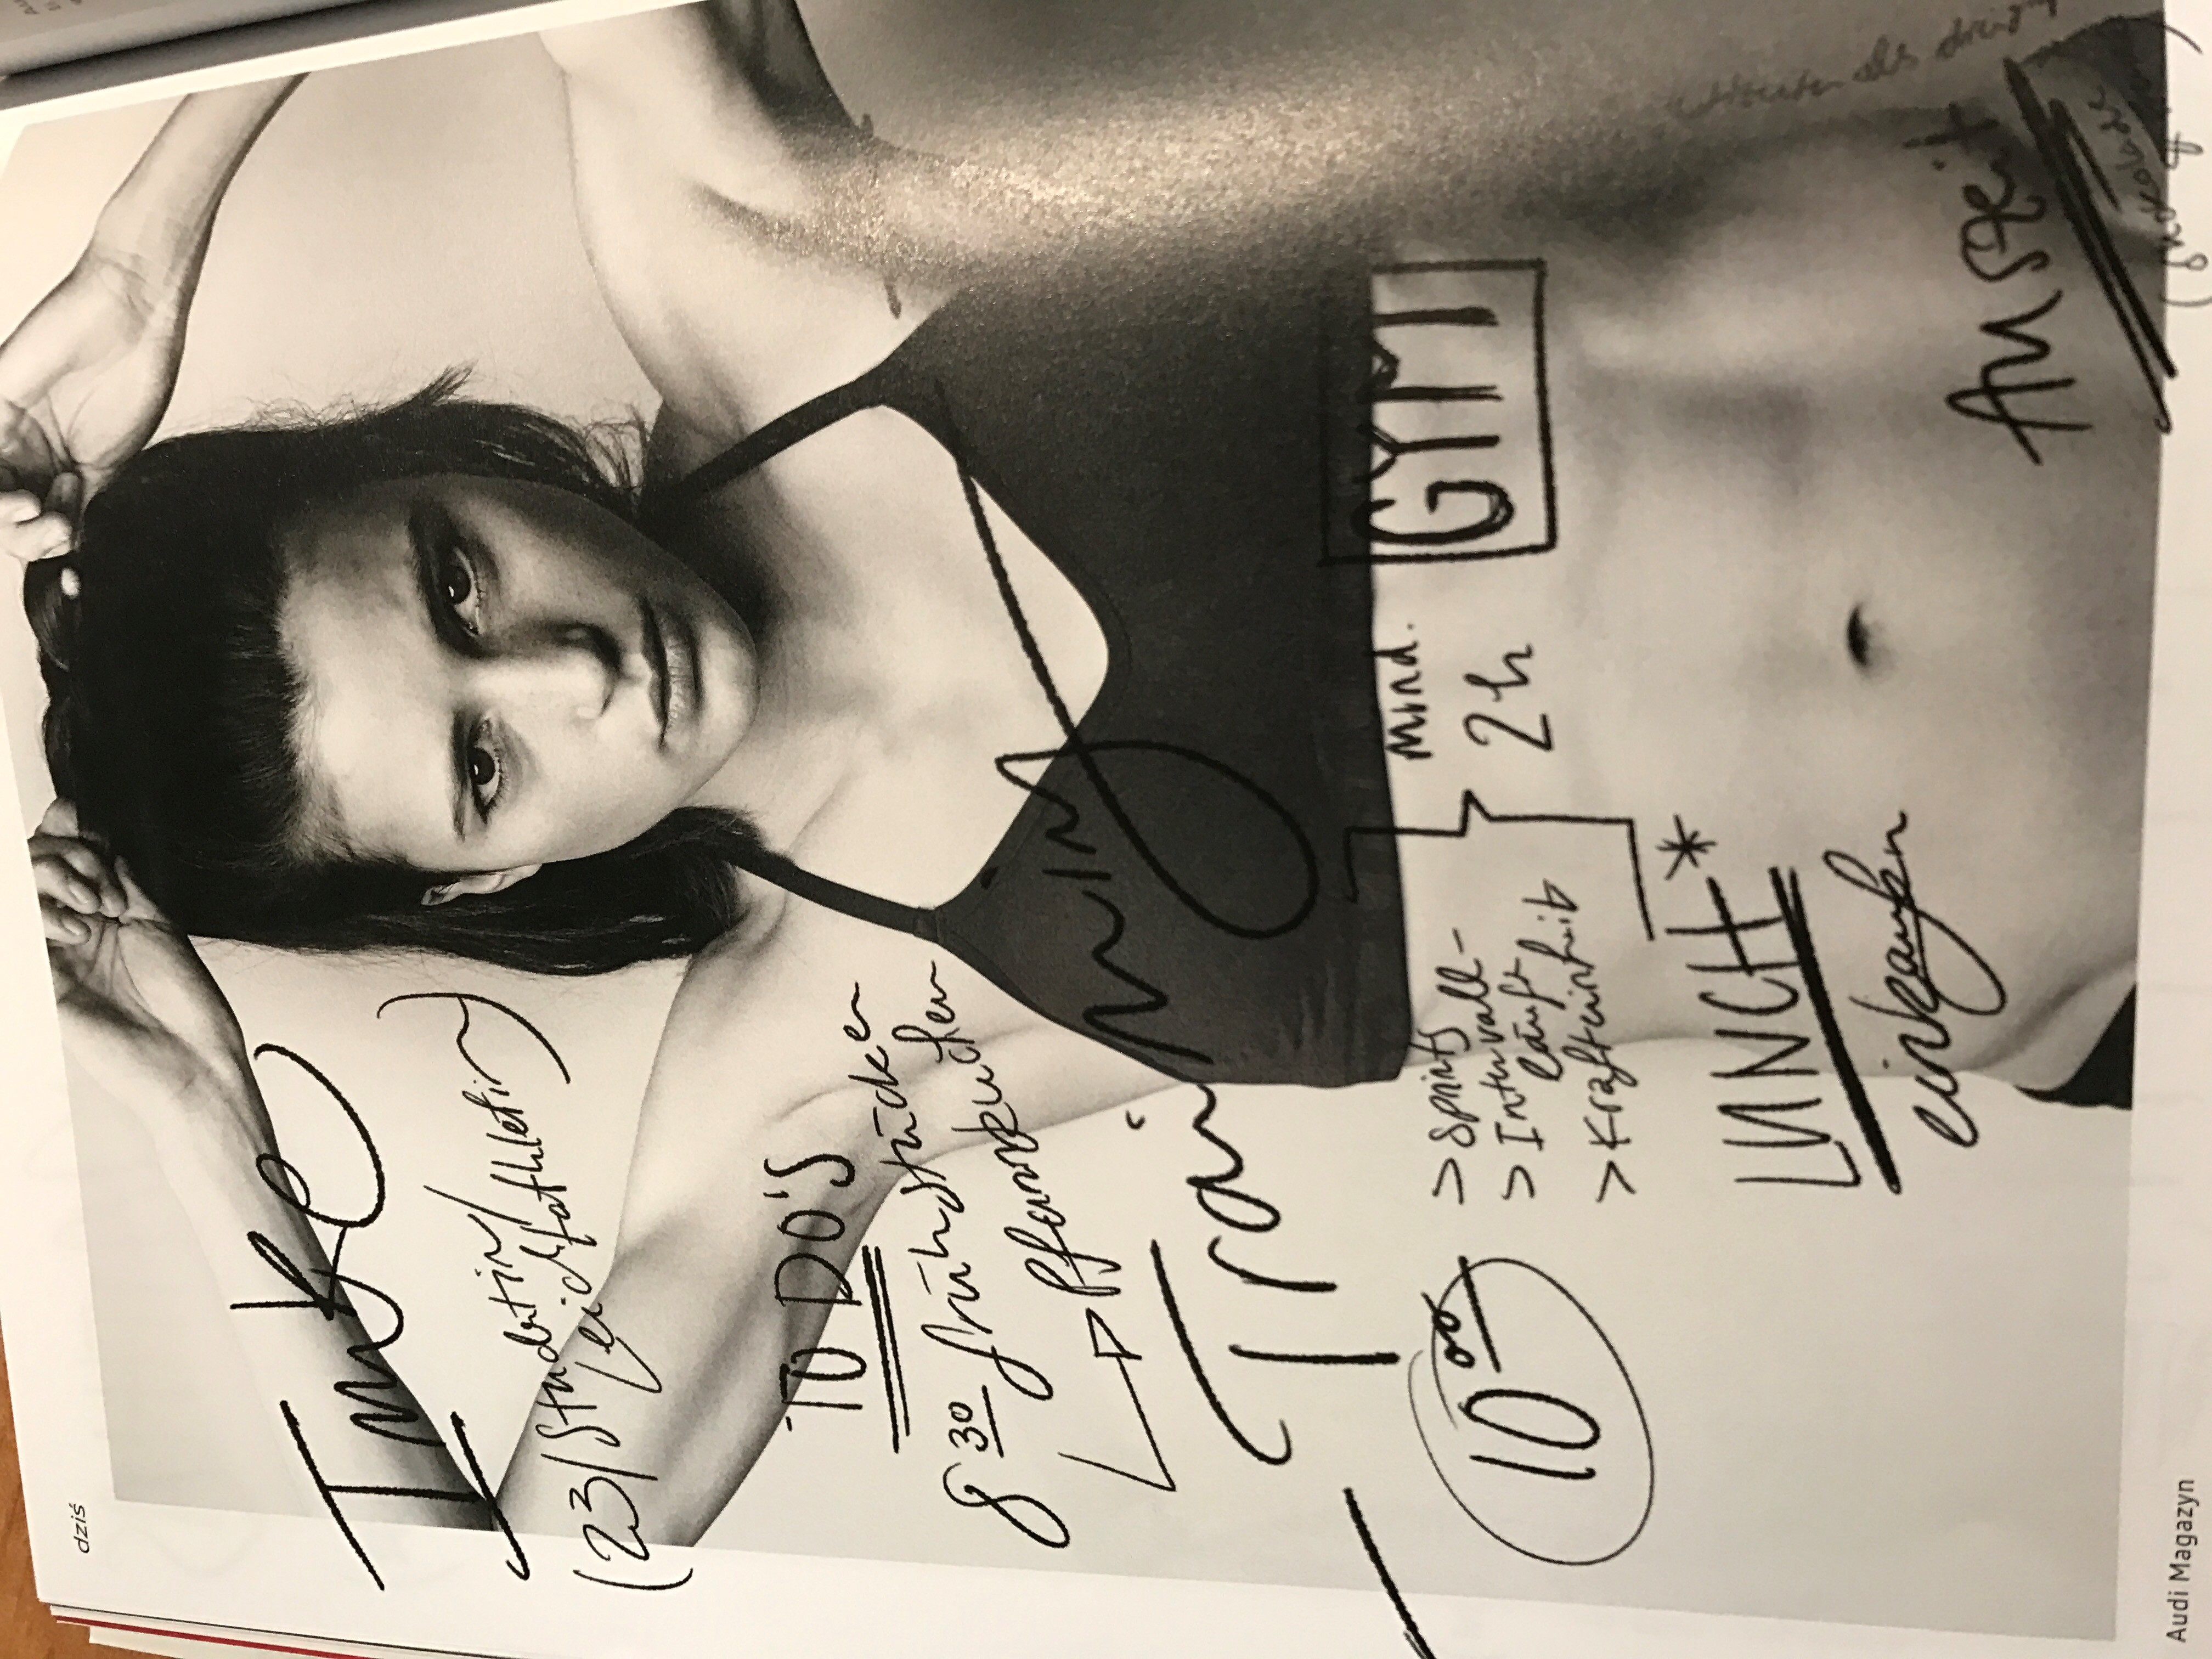 dziś
Imke
(23/Studentin/
Leichtathletin)
TO DO'S
8 30 frühstücken
Pfannkuchen
Training
10 00
> Sprints
> Intervall-
läufe
> Krafteinheit
mind.
2h
GYM
LUNCH*
einkaufen
Auszeit
als
Audi Magazyn